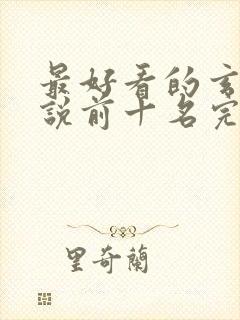 最好看的玄
說前十名完
里奇蘭